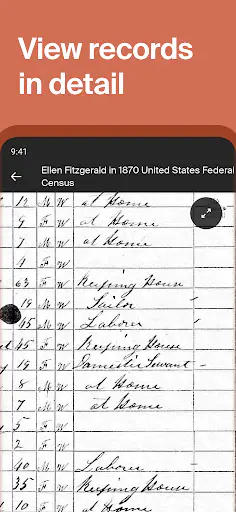 View records
in detail
9:41
Ellen Fitzgerald in 1870 United States Federal
Census
12 M W at Home
9 F W at Home
7 M W at Home
4 F W
63 F W Keeping House
19 M W Sailor
45 M W Laborer
45 F W Keeping House
19 F W Domestic Servant
8 M at Home
7 M W at Home
5 F W
2 F W
40 M W Laborer
35 F W Keeping House
10 F at Home